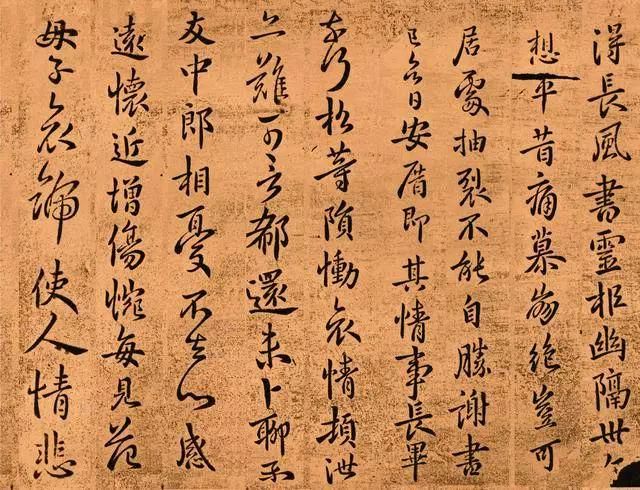 得長風書靈柩幽隔卅
想平昔痛慕崩絕豈可
居處抽裂不能自勝謝書
已令日安厝即其情事長畢
松等隕慟哀情頓泄
亦難可言郗還未卜聊示
友中郎相憂不去心感
遠懷近增傷惋每見范
母子哀號使人情悲